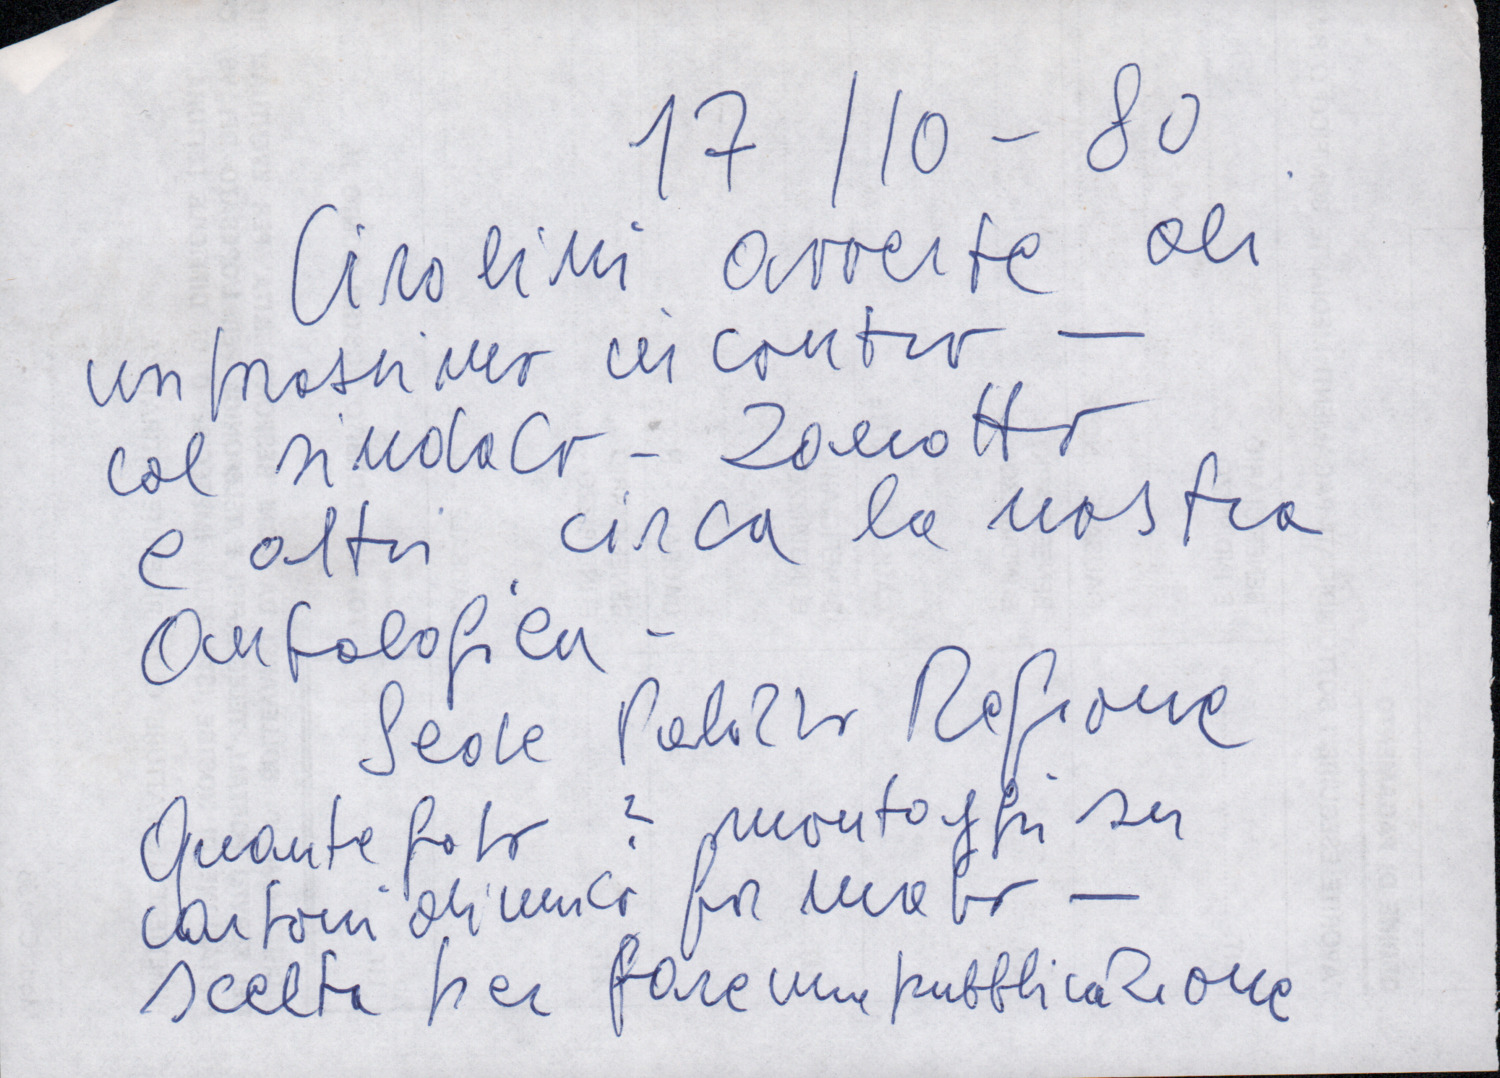 17/10-80
Cirolini avverte di
un prossimo incontro —
col sindaco - Zanotto
e altri circa la nostra
Antologica -
Sede Palazzo Regione
Quante foto? montaggi su
cartoni di unico formato —
scelta per fare una pubblicazione